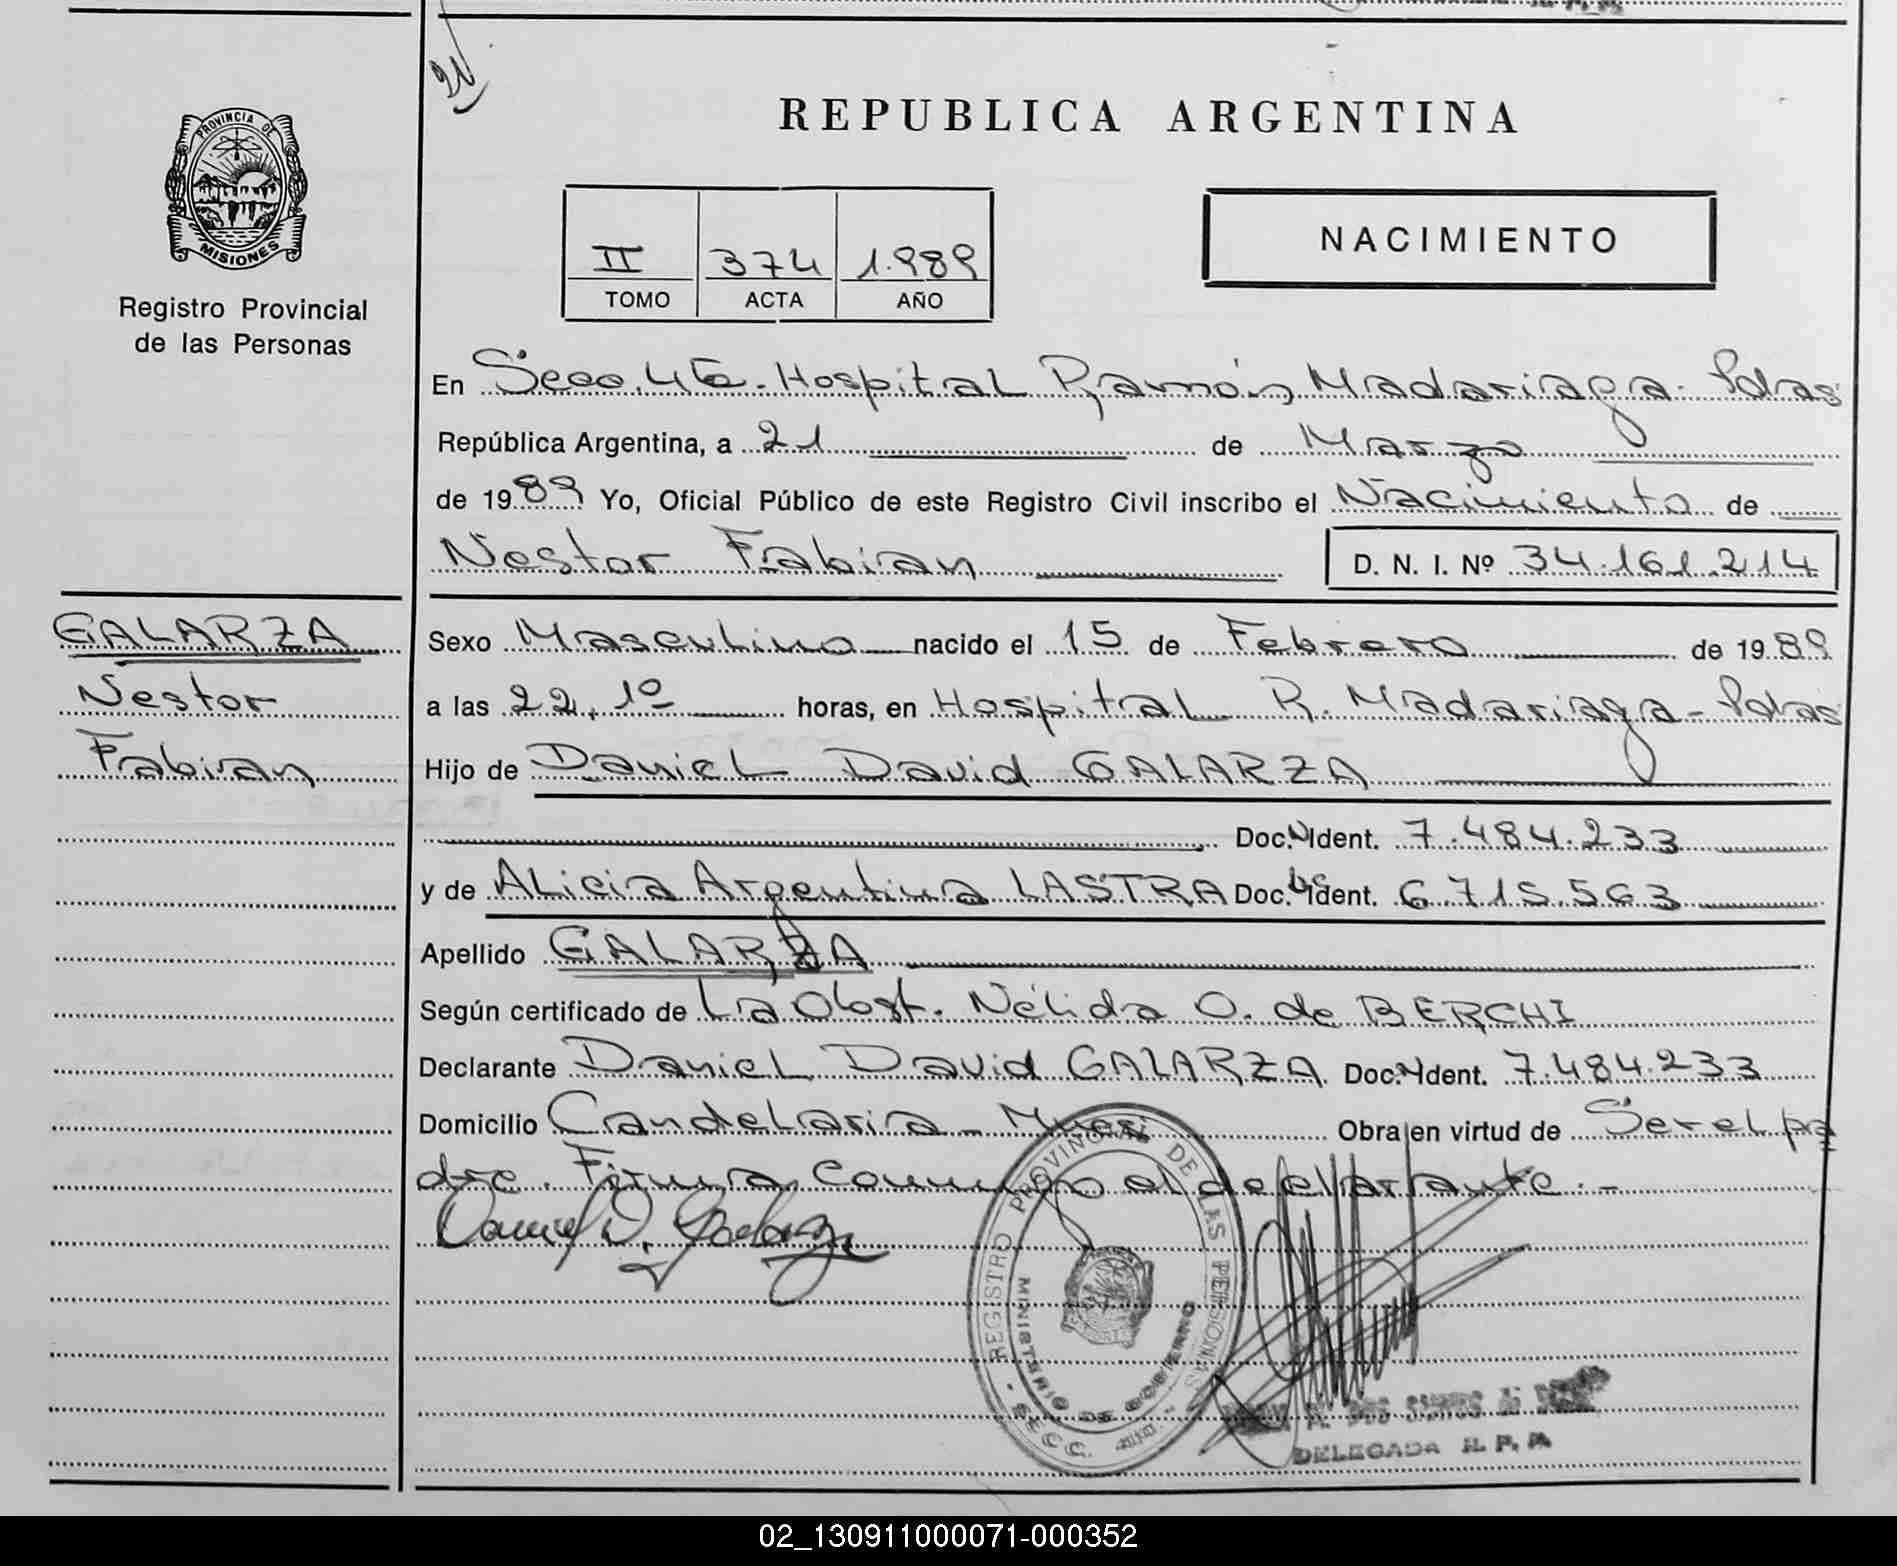 REPUBLICA ARGENTINA
PROVINCIA DE
MISIONES
Registro Provincial
de las Personas
II 374 1.989
TOMO ACTA AÑO
NACIMIENTO
En Secc. 4ta. Hospital Ramón Madariaga - Pdas
República Argentina, a 21 de Marzo
de 1989 Yo, Oficial Público de este Registro Civil inscribo el Nacimiento de
Nestor Fabian D. N. I. Nº 34.161.214
GALARZA
Nestor
Fabian
Sexo Masculino nacido el 15 de Febrero de 1989
a las 22,10 horas, en Hospital R. Madariaga - Pdas
Hijo de Daniel David GALARZA
Doc. Ident. 7.484.233
y de Alicia Argentina LASTRA Doc. Ident. 6.715.563
Apellido GALARZA
Según certificado de La Obst. Nélida O. de BERCHI
Declarante Daniel David GALARZA Doc. Ident. 7.484.233
Domicilio Candelaria - Mnes Obra en virtud de Ser el pa
dre. Firma conmigo el declarante.-
Daniel D. Galarza
REGISTRO PROVINCIAL DE LAS PERSONAS
MINISTERIO DE GOBIERNO
SECC.
DELEGADA R. P. P.
02_130911000071-000352